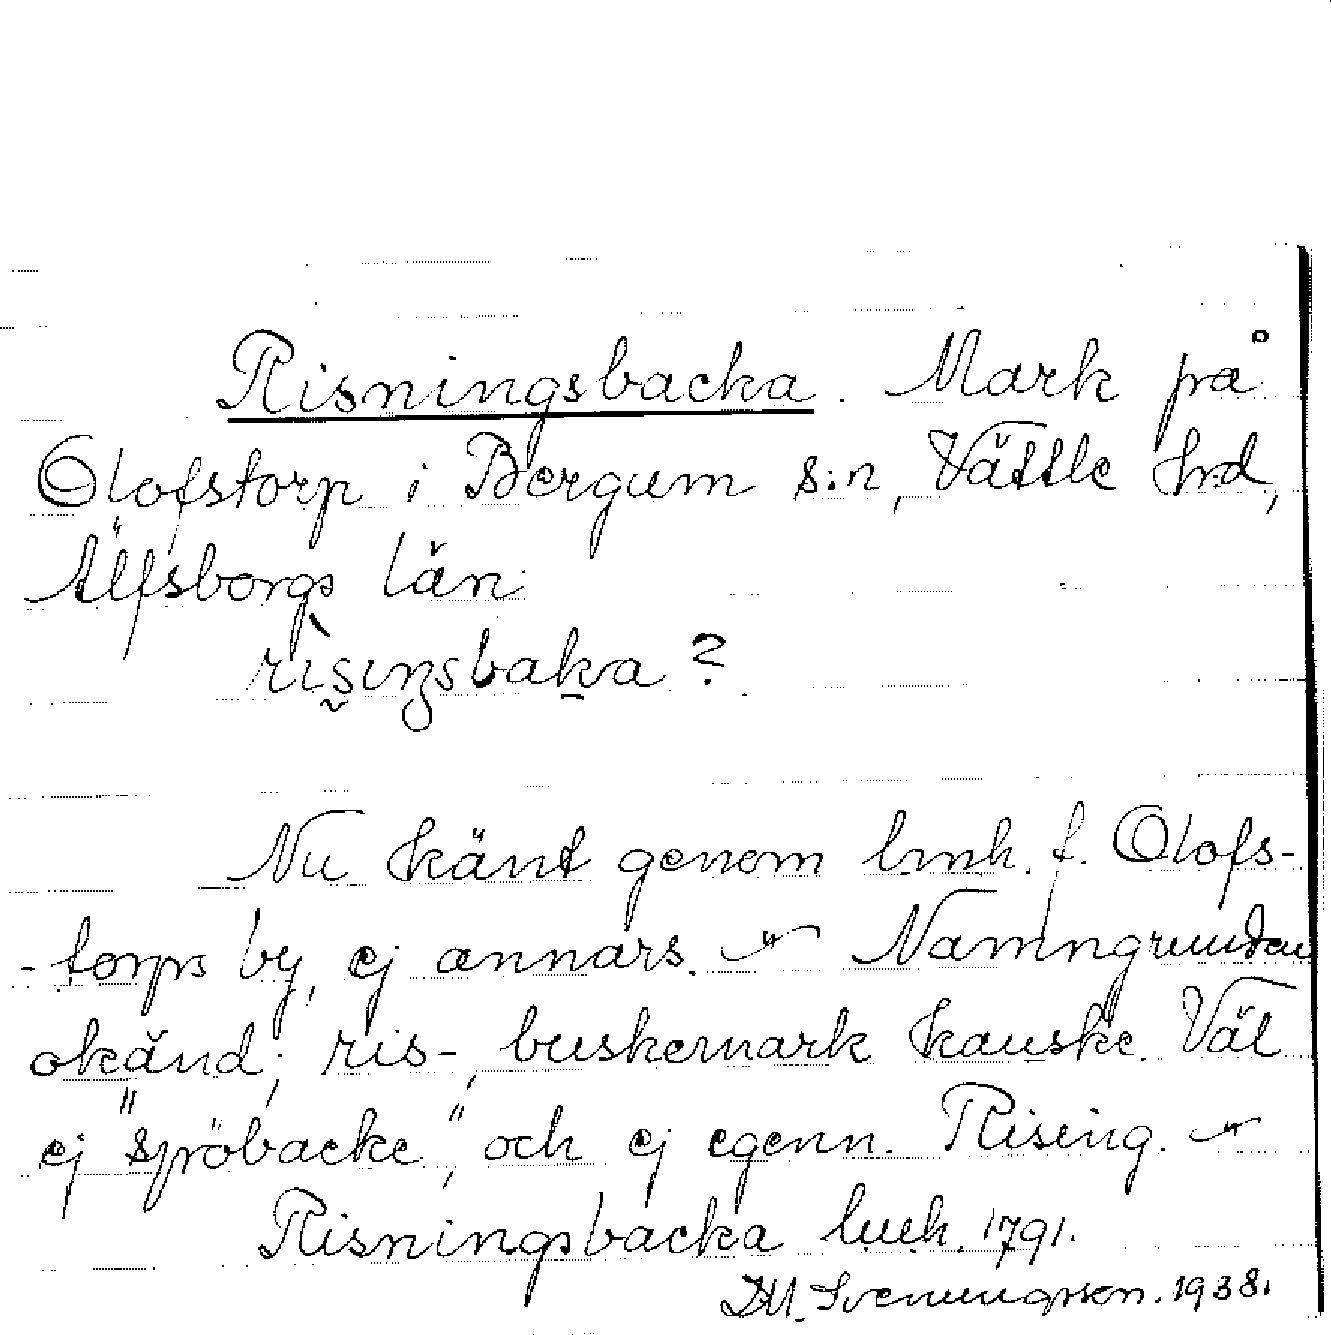 Risningsbacka. Mark på
Olofstorp i Bergum s:n, Vättle hd,
Älfsborgs län.
risiŋsbaka?
Nu känt genom lmh. f. Olofs-
-torps by, ej annars. – " – Namngrunden
okänd; ris-, buskemark kanske. Väl
ej "spöbacke", och ej egenn. Rising. – " –
Risningsbacka lmh. 1791.
Svenungsson. 1938.